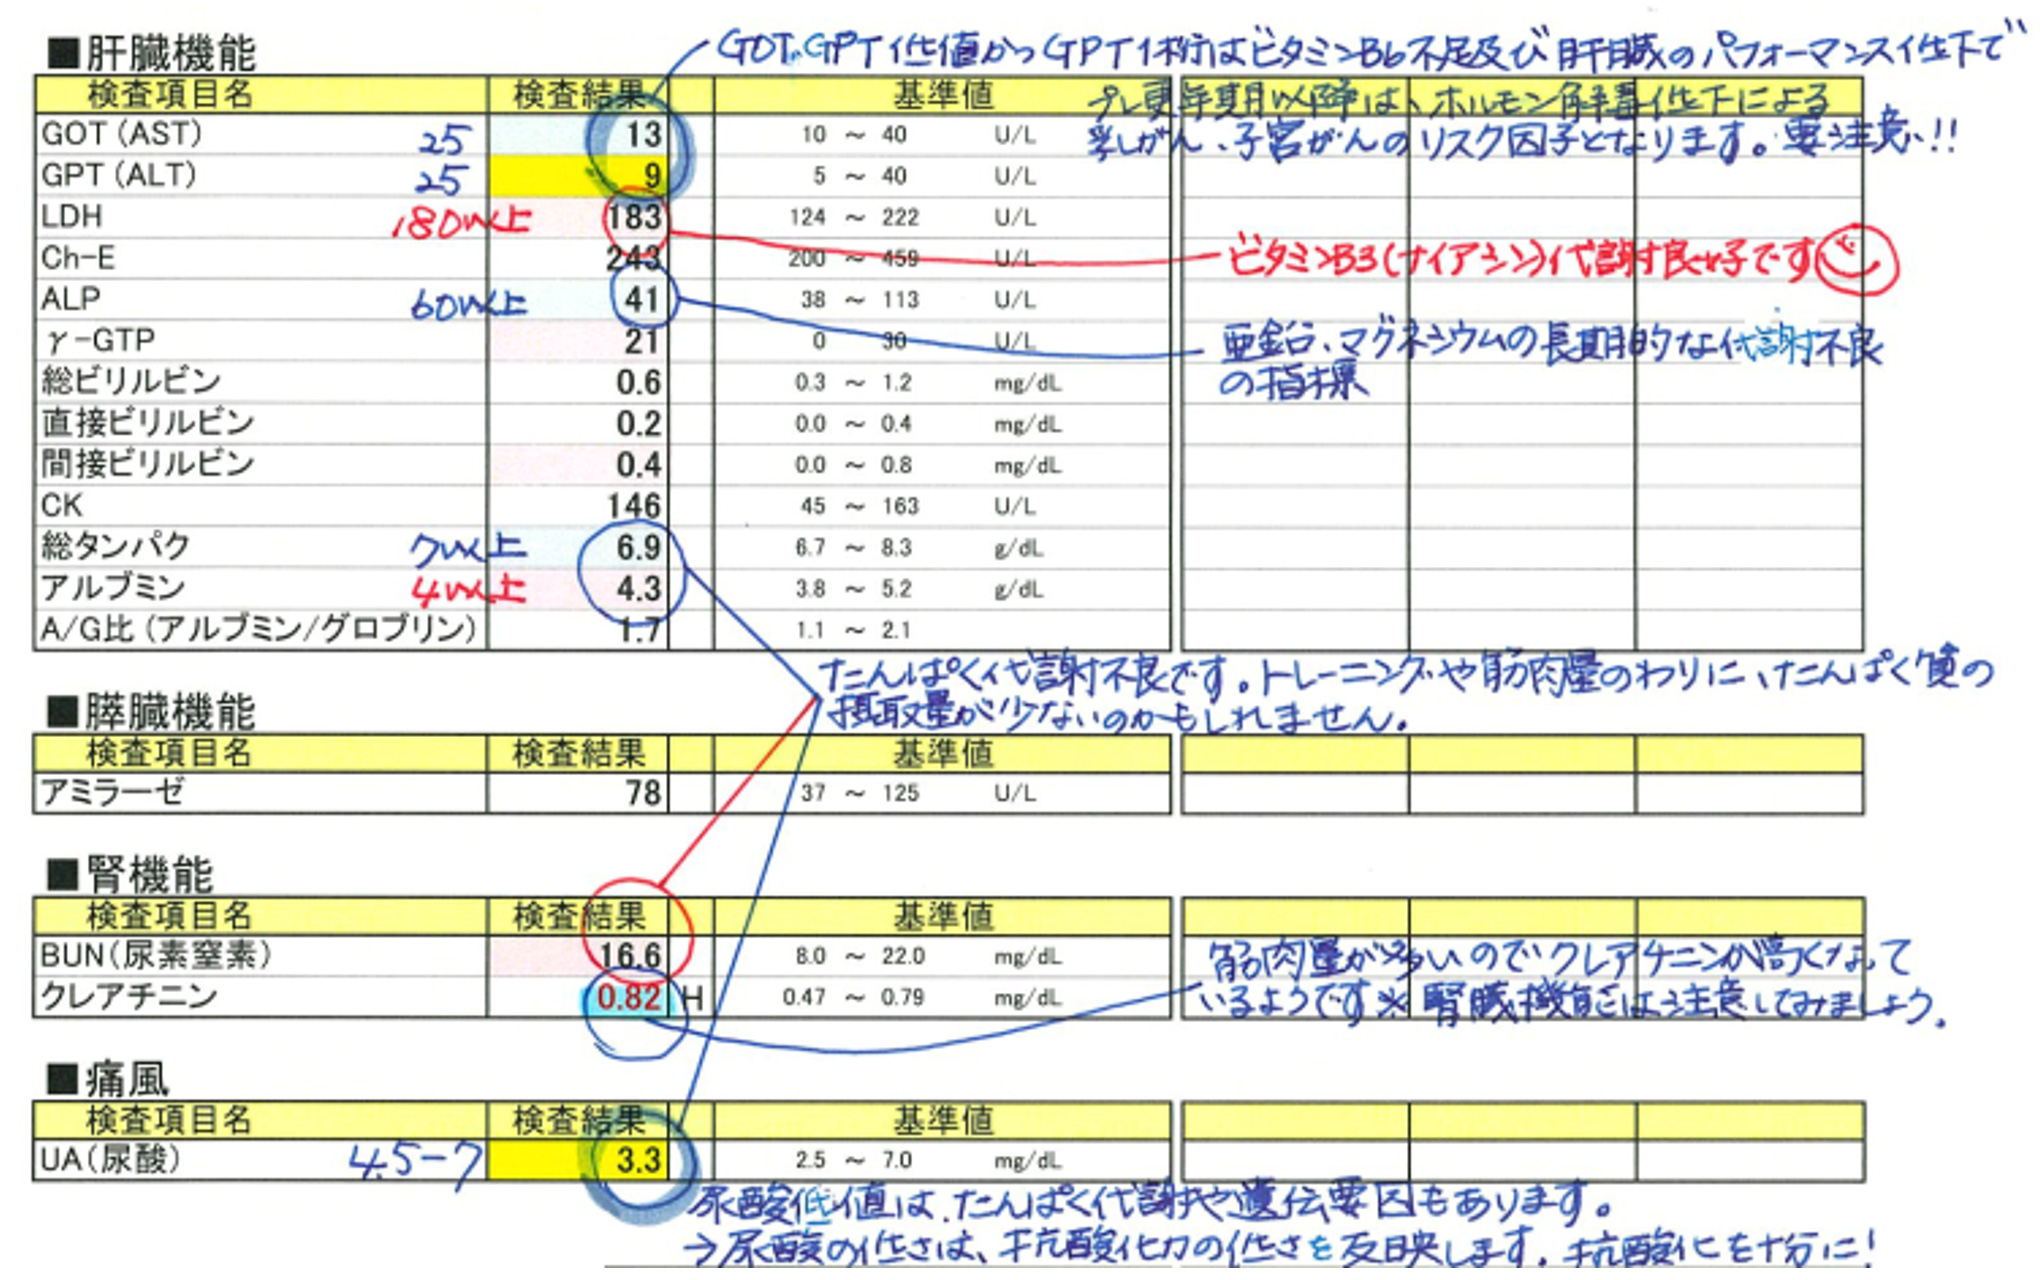 ■肝臓機能
GOT、GPT低値かつGPT1桁はビタミンB6不足及び肝臓のパフォーマンス低下で
プレ更年期以降は、ホルモン解毒低下による
乳がん、子宮がんのリスク因子となります。要注意!!
検査項目名 検査結果 基準値
GOT (AST) 25 13 10 ～ 40 U/L
GPT (ALT) 25 9 5 ～ 40 U/L
LDH 180以上 183 124 ～ 222 U/L
Ch-E 243 200 ～ 459 U/L
ビタミンB3(ナイアシン)代謝良い子です
ALP 60以上 41 38 ～ 113 U/L
γ-GTP 21 0 30 U/L
亜鉛、マグネシウムの長期的な代謝不良
の指標
総ビリルビン 0.6 0.3 ～ 1.2 mg/dL
直接ビリルビン 0.2 0.0 ～ 0.4 mg/dL
間接ビリルビン 0.4 0.0 ～ 0.8 mg/dL
CK 146 45 ～ 163 U/L
総タンパク 7以上 6.9 6.7 ～ 8.3 g/dL
アルブミン 4以上 4.3 3.8 ～ 5.2 g/dL
A/G比 (アルブミン/グロブリン) 1.7 1.1 ～ 2.1
たんぱく代謝不良です。トレーニングや筋肉量のわりに、たんぱく質の
摂取量が少ないのかもしれません。
■膵臓機能
検査項目名 検査結果 基準値
アミラーゼ 78 37 ～ 125 U/L
■腎機能
検査項目名 検査結果 基準値
BUN(尿素窒素) 16.6 8.0 ～ 22.0 mg/dL
クレアチニン 0.82 H 0.47 ～ 0.79 mg/dL
筋肉量が多いのでクレアチニンが高くなって
いるようです※腎臓機能は注意してみましょう。
■痛風
検査項目名 検査結果 基準値
UA(尿酸) 4.5-7 3.3 2.5 ～ 7.0 mg/dL
尿酸低値は、たんぱく代謝や遺伝要因もあります。
→尿酸の低さは、抗酸化力の低さを反映します。抗酸化を十分に!